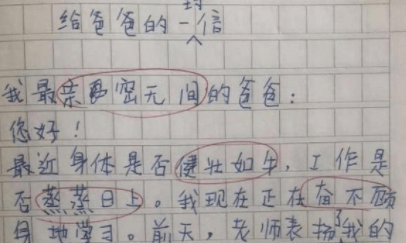 给爸爸的一封信
我最亲密无间的爸爸：
您好！
最近身体是否健壮如牛，工作是
否蒸蒸日上。我现在正在奋不顾
身地学习。前天，老师表扬了我的